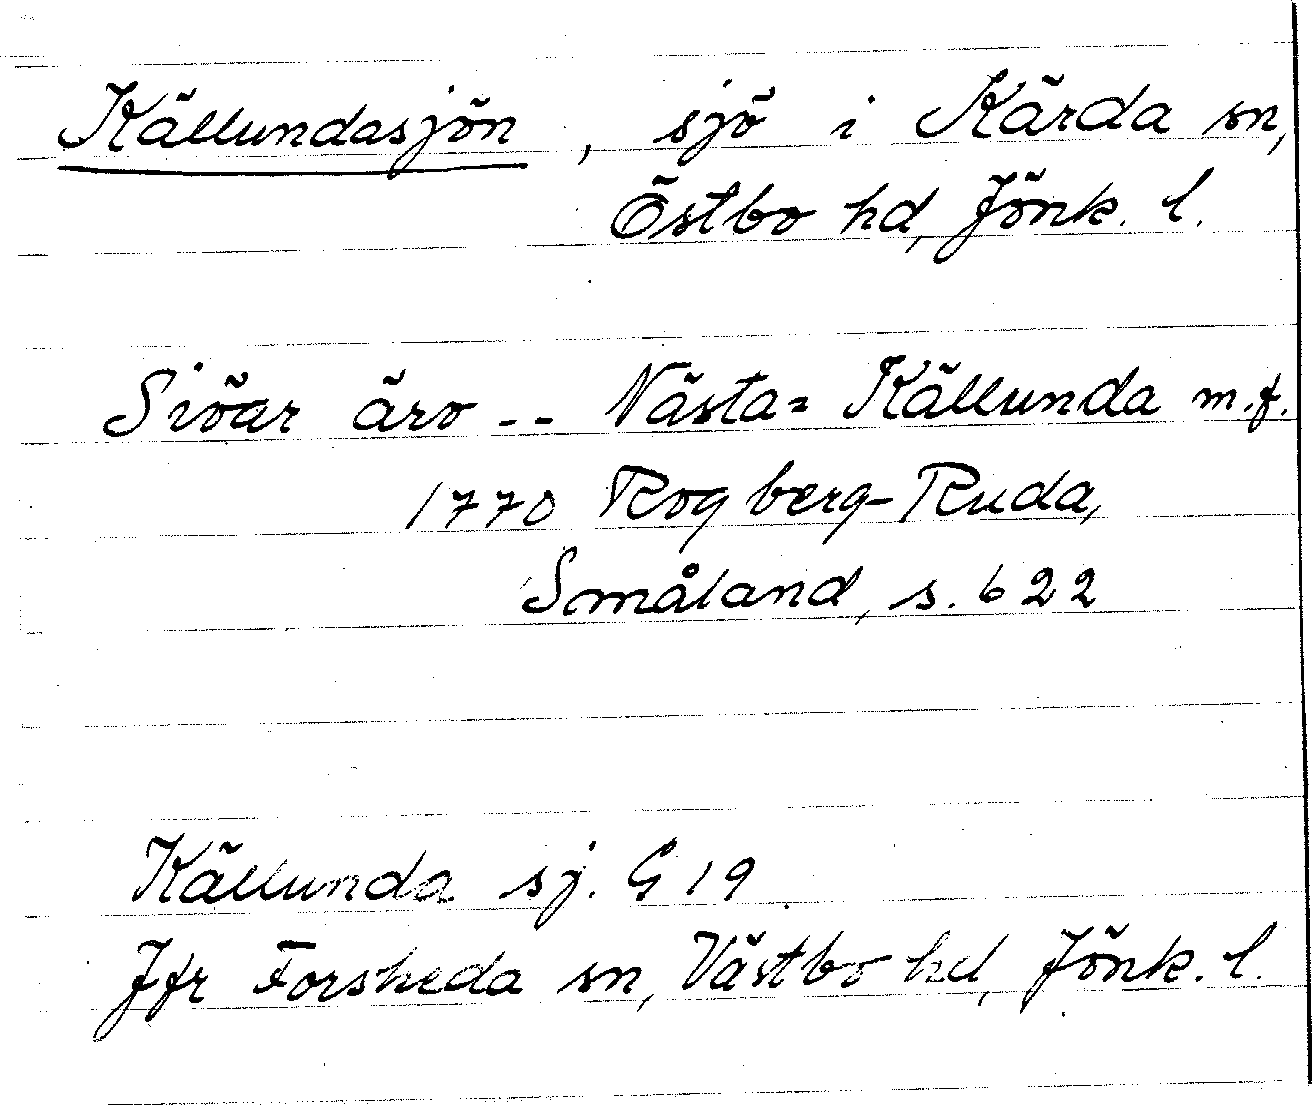 Källundasjön, sjö i Kärda sn,
Östbo hd, Jönk. l.
Siöar äro -- Nästa= Källunda m.f.
1770 Rogberg-Ruda,
Småland, s. 622
Källunda sj. G 19
Jfr Forsheda sn, Västbo hd, Jönk. l.